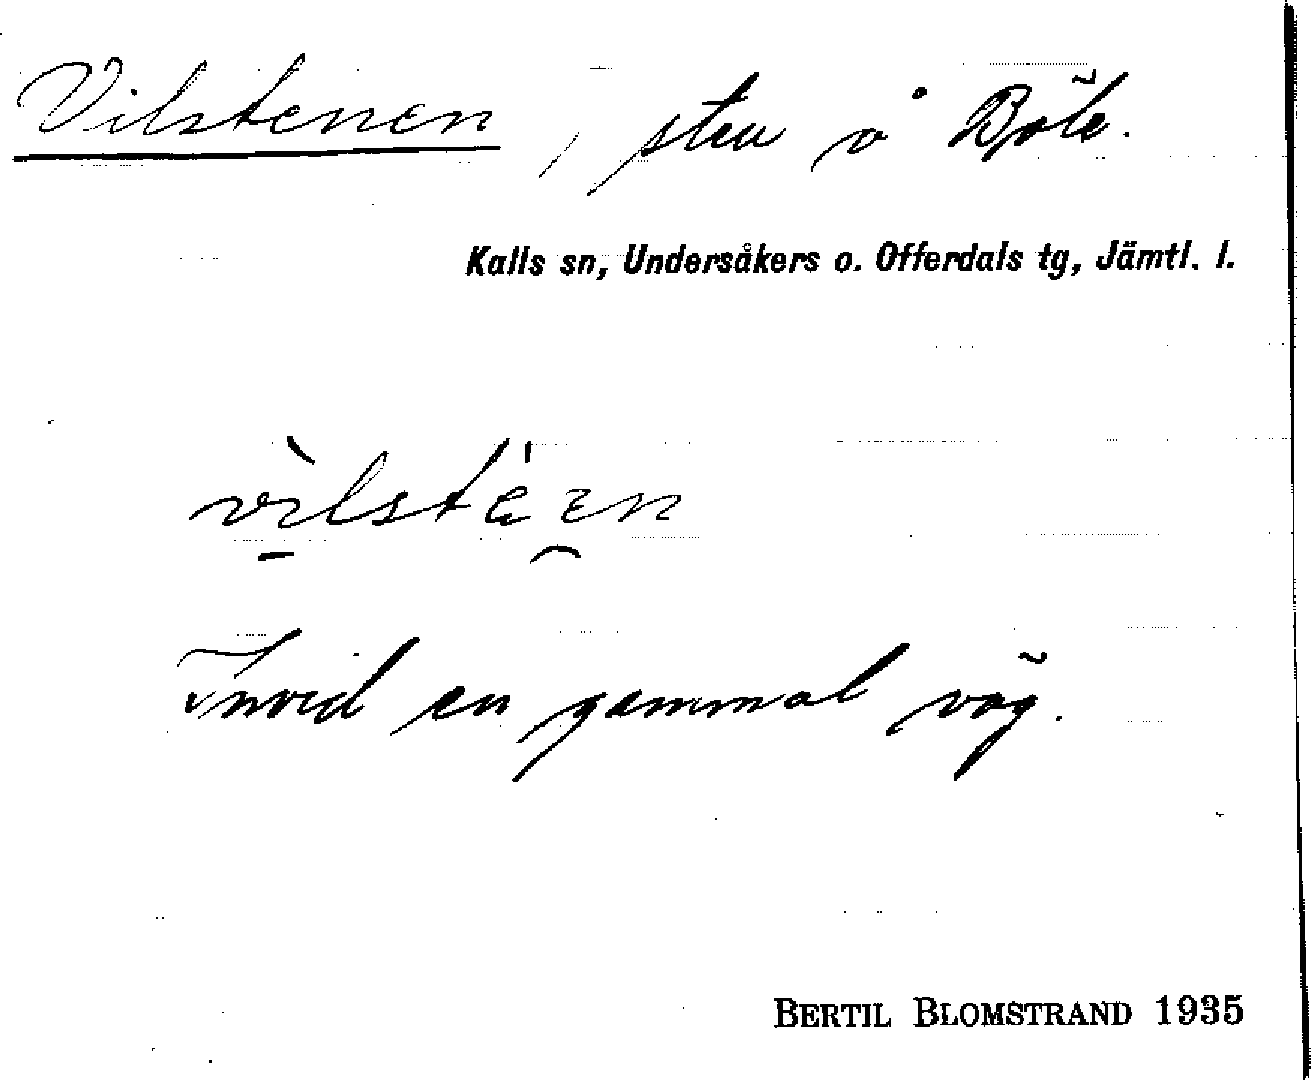 Vilstenen, sten å Böle.
Kalls sn, Undersåkers o. Offerdals tg, Jämtl. l.
Invid en gammal väg.
BERTIL BLOMSTRAND 1935